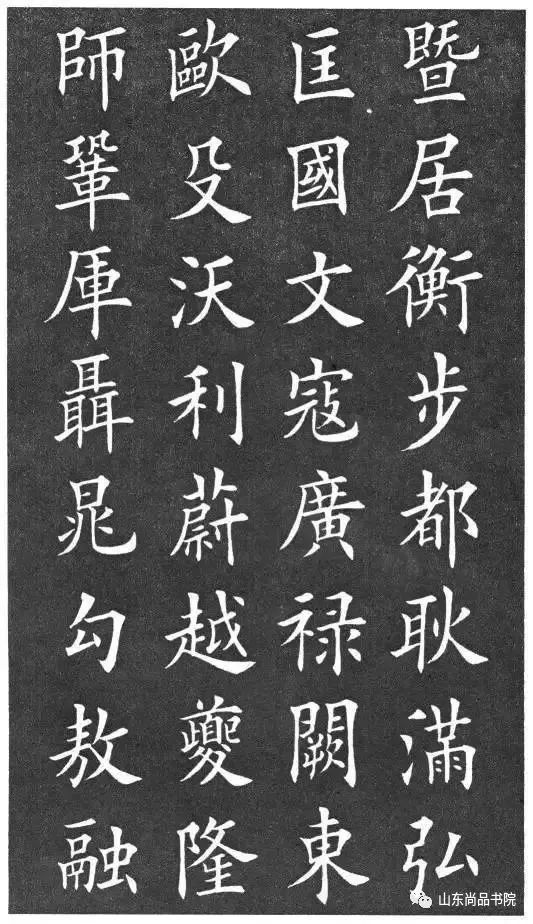 暨居衡步都耿滿弘
匡國文寇廣禄闕東
歐殳沃利蔚越夔隆
師鞏厙聶晁勾敖融
山东尚品书院